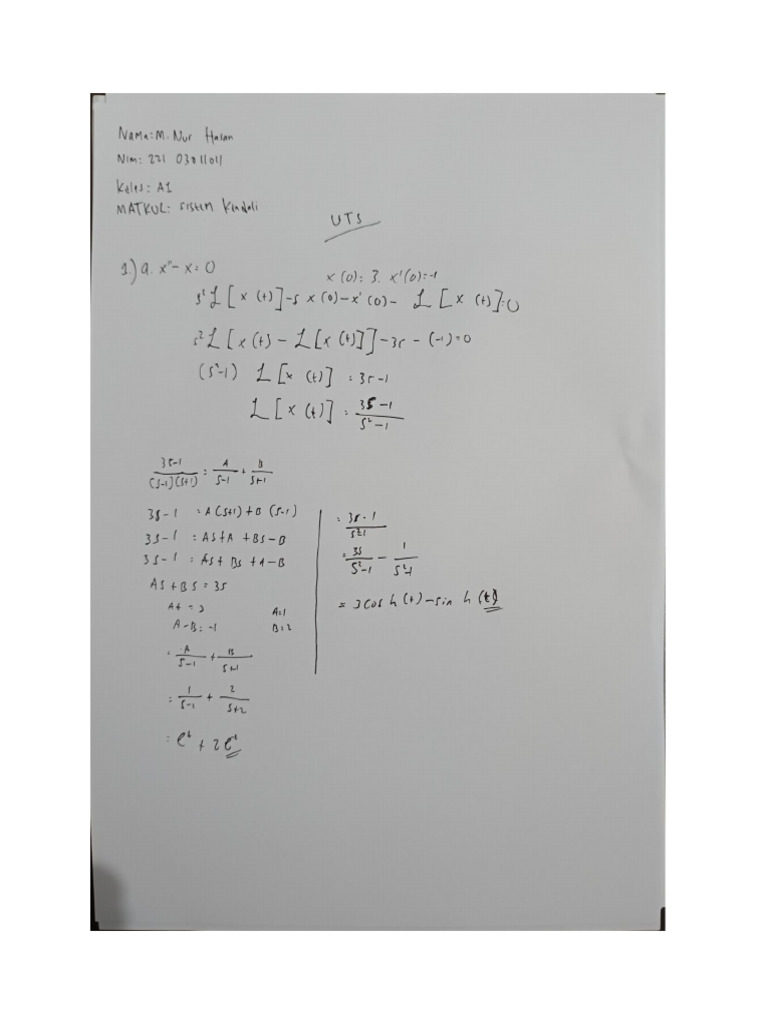 Nama: M. Nur Hasan
Nim: 221 03011011
Kelas: A1
MATKUL: Sistem Kendali
UTS
1.) a. x" - x = 0
x (0) = 3. x' (0) = -1
s² L [x (t)] - s x (0) - x' (0) - L [x (t)] = 0
s² L [x (t) - L [x (t)]] - 3s - (-1) = 0
(s²-1) L [x (t)] = 3s - 1
L [x (t)] = 3s - 1 / s² - 1
3s-1 / (s-1)(s+1) = A / s-1 + B / s+1
3s - 1 = A (s+1) + B (s-1)
3s - 1 = As + A + Bs - B
3s - 1 = As + Bs + A - B
As + Bs = 3s
A + = 3
A - B = -1
A = 1
B = 2
= A / s-1 + B / s+1
= 1 / s-1 + 2 / s+2
= e^t + 2 e^-t
= 3s - 1 / s²-1
= 3s / s²-1 - 1 / s²-1
= 3 cos h (t) - sin h (t)